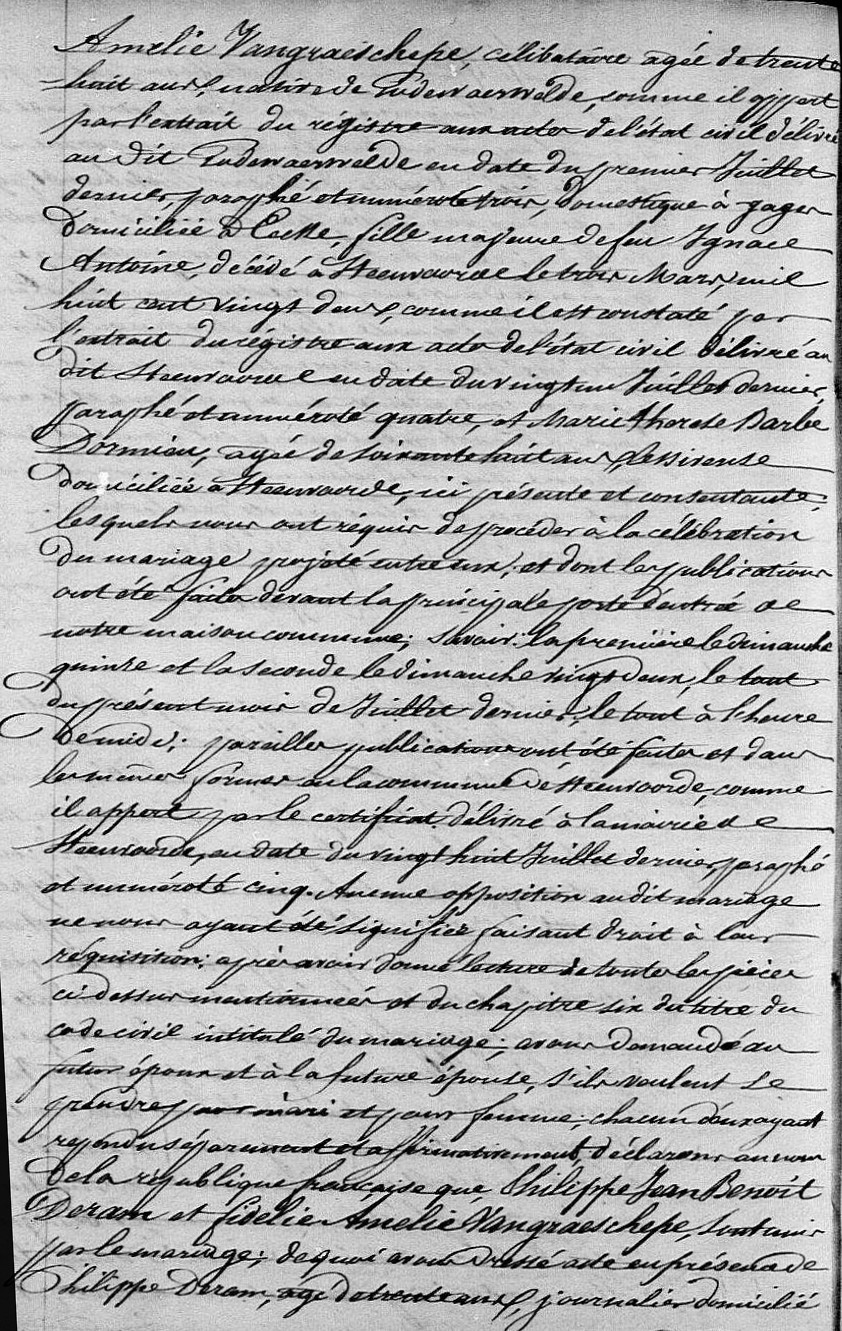 Amelie Vangraeschepe, célibataire agée de trente
huit ans, native de Godewaersvelde, comme il appert
par l'extrait du régistre aux actes de l'état civil délivré
au dit Godewaersvelde en date du premier Juillet
dernier, paraphé et numéroté trois, domestique à gages
domiciliée à Eecke, fille majeure de feu Ignace
Antoine, décédé à Steenvoorde le trois Mars, mil
huit cent vingt deux, comme il est constaté par
l'extrait du régistre aux actes de l'état civil délivré au
dit Steenvoorde en date du vingt un Juillet dernier,
paraphé et numéroté quatre, et Marie Therese Barbe
Dormieu, agée de soixante huit ans, lessiveuse
domiciliée à Steenvoorde, ici présente et consentante;
lesquels nous ont réquis de procéder à la célébration
du mariage projeté entre eux, et dont les publications
ont été faites devant la principale porte d'entrée de
notre maison commune; savoir: la première le dimanche
quinze et la seconde le dimanche vingt deux, le tout
du présent mois de Juillet dernier, le tout à l'heure
de midi; pareilles publications ont été faites et dans
les mêmes formes en la commune de Steenvoorde, comme
il appert par le certificat délivré à la mairie de
Steenvoorde, en date du vingt huit Juillet dernier, paraphé
et numéroté cinq. Aucune opposition au dit mariage
ne nous ayant été signifiée faisant droit à leur
réquisition: après avoir donné lecture de toutes les pièces
ci dessus mentionnées et du chapitre six du titre du
code civil intitulé du mariage; avons demandé au
futur époux et à la future épouse, s'ils veulent se
prendre pour mari et pour femme; chacun d'eux ayant
repondu séparement et affirmativement, déclarons au nom
de la république française que, Philippe Jean Benoit
Deram et Fidelie Amelie Vangraeschepe, sont unis
par le mariage; de quoi avons dressé acte en présence de
Philippe Deram, agé de trente ans, journalier domicilié